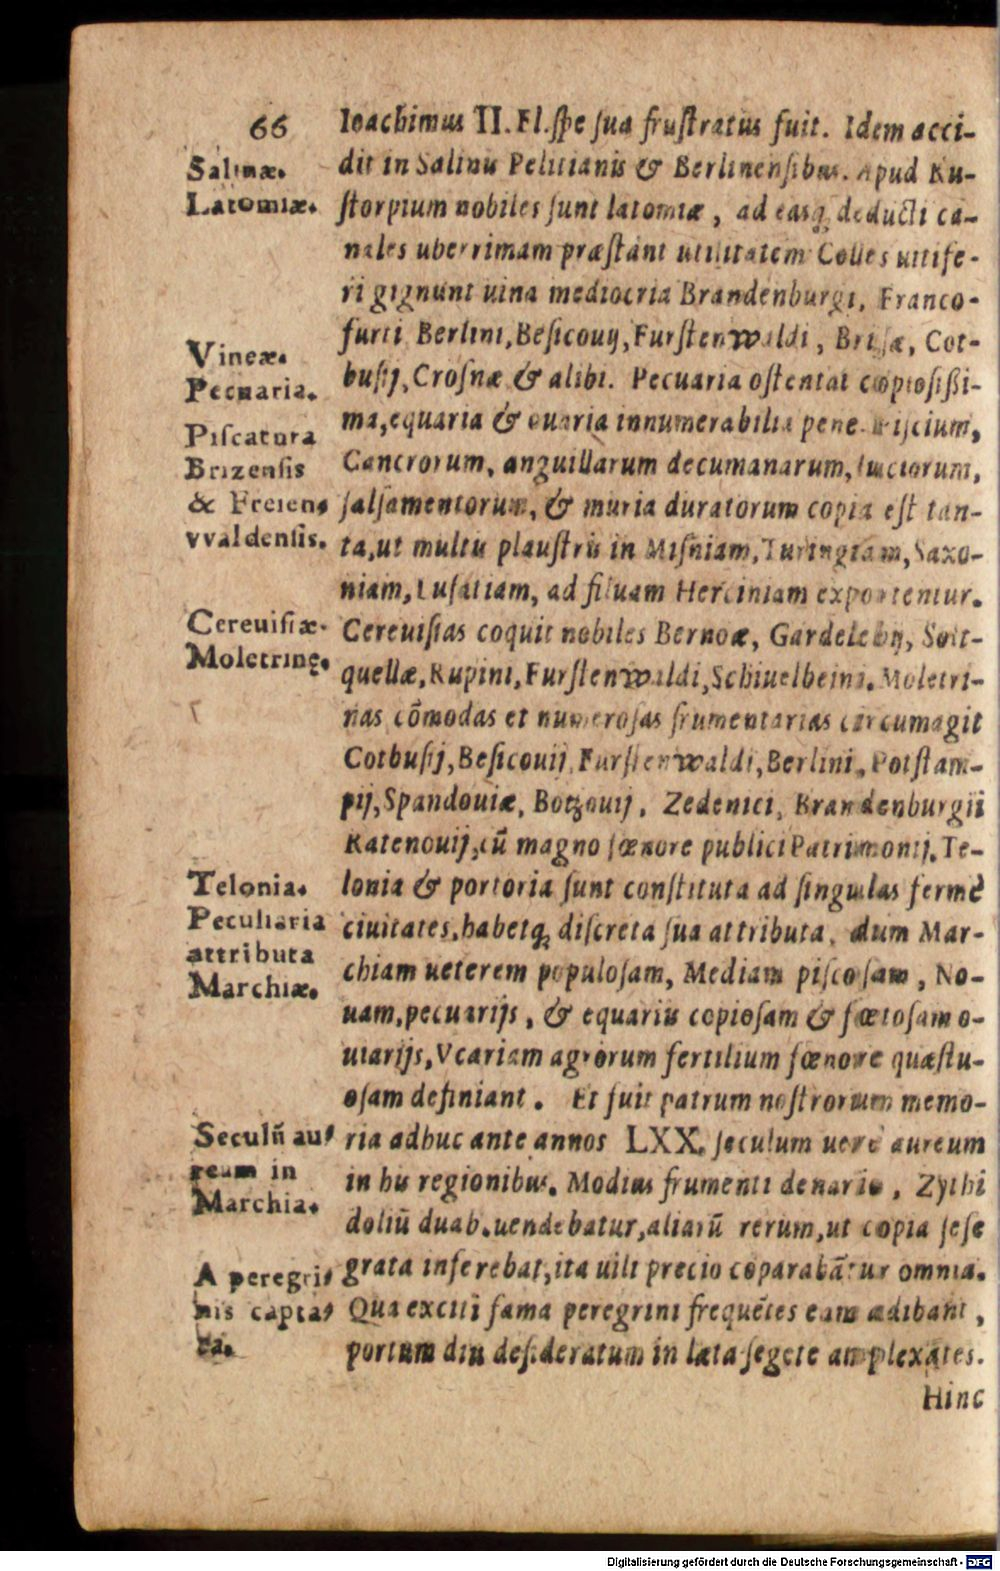 66
Ioachimus II. El. spe sua frustratus fuit. Idem acci-
dit in Salinis Pelitianis & Berlinensibus. Apud Ru-
storpium nobiles sunt latomiæ, ad easq; deducti ca-
nales uberrimam præstant utilitatem Colles uitife-
ri gignunt uina mediocria Brandenburgi, Franco-
furti Berlini, Besicouij, Furstenwaldi, Brisæ, Cot-
busij, Crosnæ & alibi. Pecuaria ostentat copiosißi-
ma, equaria & ouaria innumerabilia pene. Piscium,
Cancrorum, anguillarum decumanarum, luctorum,
salsamentorum, & muria duratorum copia est tan-
ta, ut multis plaustris in Misniam, Turingiam, Saxo-
niam, Lusatiam, ad siluam Herciniam exportentur.
Cereuisias coquit nobiles Bernoæ, Gardelebij, Solt-
quellæ, Rupini, Furstenwaldi, Schiuelbeini. Moletri-
nas cōmodas et numerosas frumentarias circumagit
Cotbusij, Besicouij Furstenwaldi, Berlini, Potstam-
pij, Spandouiæ, Botzouij, Zedenici, Brandenburgii
Ratenouij, cū magno fœnore publici Patrimonij. Te-
lonia & portoria sunt constituta ad singulas fermè
ciuitates, habetq; discreta sua attributa, dum Mar-
chiam ueterem populosam, Mediam piscosam, No-
uam, pecuarijs, & equariis copiosam & fœtosam o-
uiarijs, Vcariam agrorum fertilium fœnore quæstu-
osam definiant. Et fuit patrum nostrorum memo-
ria adhuc ante annos LXX. seculum uere aureum
in his regionibus. Modius frumenti denario, Zythi
doliū duab. uendebatur, aliarū rerum, ut copia sese
grata inferebat, ita uili precio cōparabātur omnia.
Qua exciti fama peregrini frequētes eam adibant,
portum diu desideratum in læta segete amplexātes.
Hinc
Salinæ.
Latomiæ.
Vineæ.
Pecuaria.
Piscatura
Brizensis
& Freien-
vvaldensis.
Cereuisiæ.
Moletrinę.
Telonia.
Peculiaria
attributa
Marchiæ.
Seculū au-
reum in
Marchia.
A peregri-
nis capta-
ta.
Digitalisierung gefördert durch die Deutsche Forschungsgemeinschaft - DFG